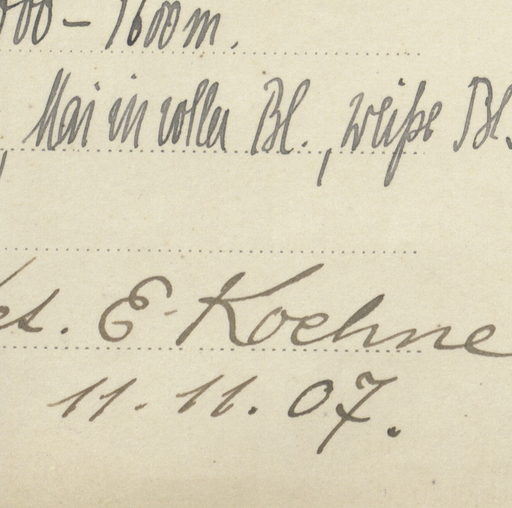 000 – 1600 m.
, Mai in voller Bl., weiße Bl.
et. E. Koehne
11. 11. 07.